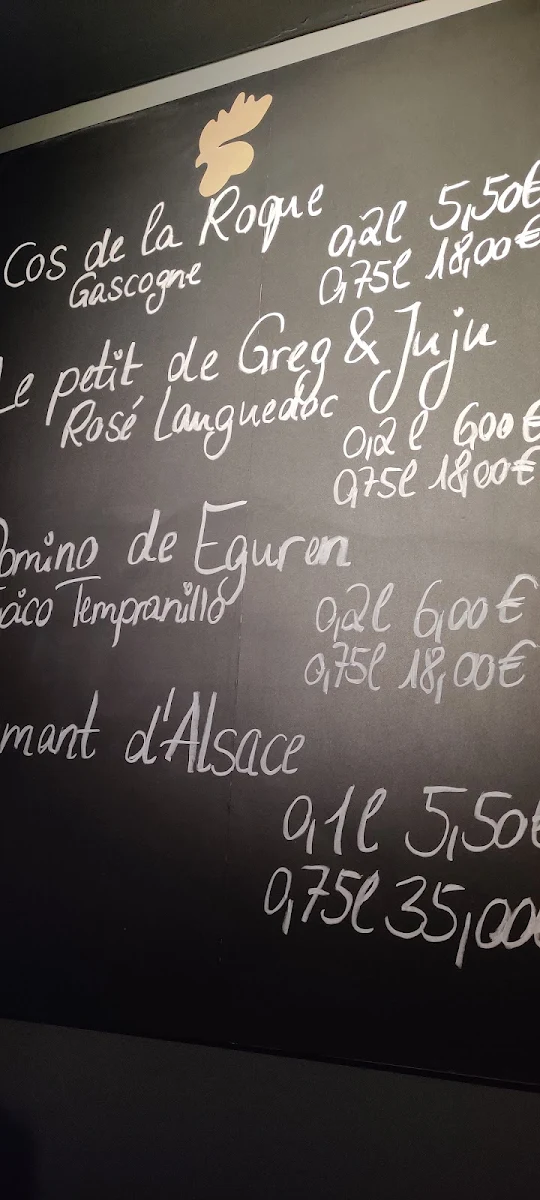 Cos de la Roque
Gascogne
0,2l 5,50€
0,75l 18,00€
Le petit de Greg & Juju
Rosé Languedoc
0,2l 6,00€
0,75l 18,00€
Domino de Eguren
Tempranillo
0,2l 6,00€
0,75l 18,00€
d'Alsace
0,1l 5,50€
0,75l 35,00€